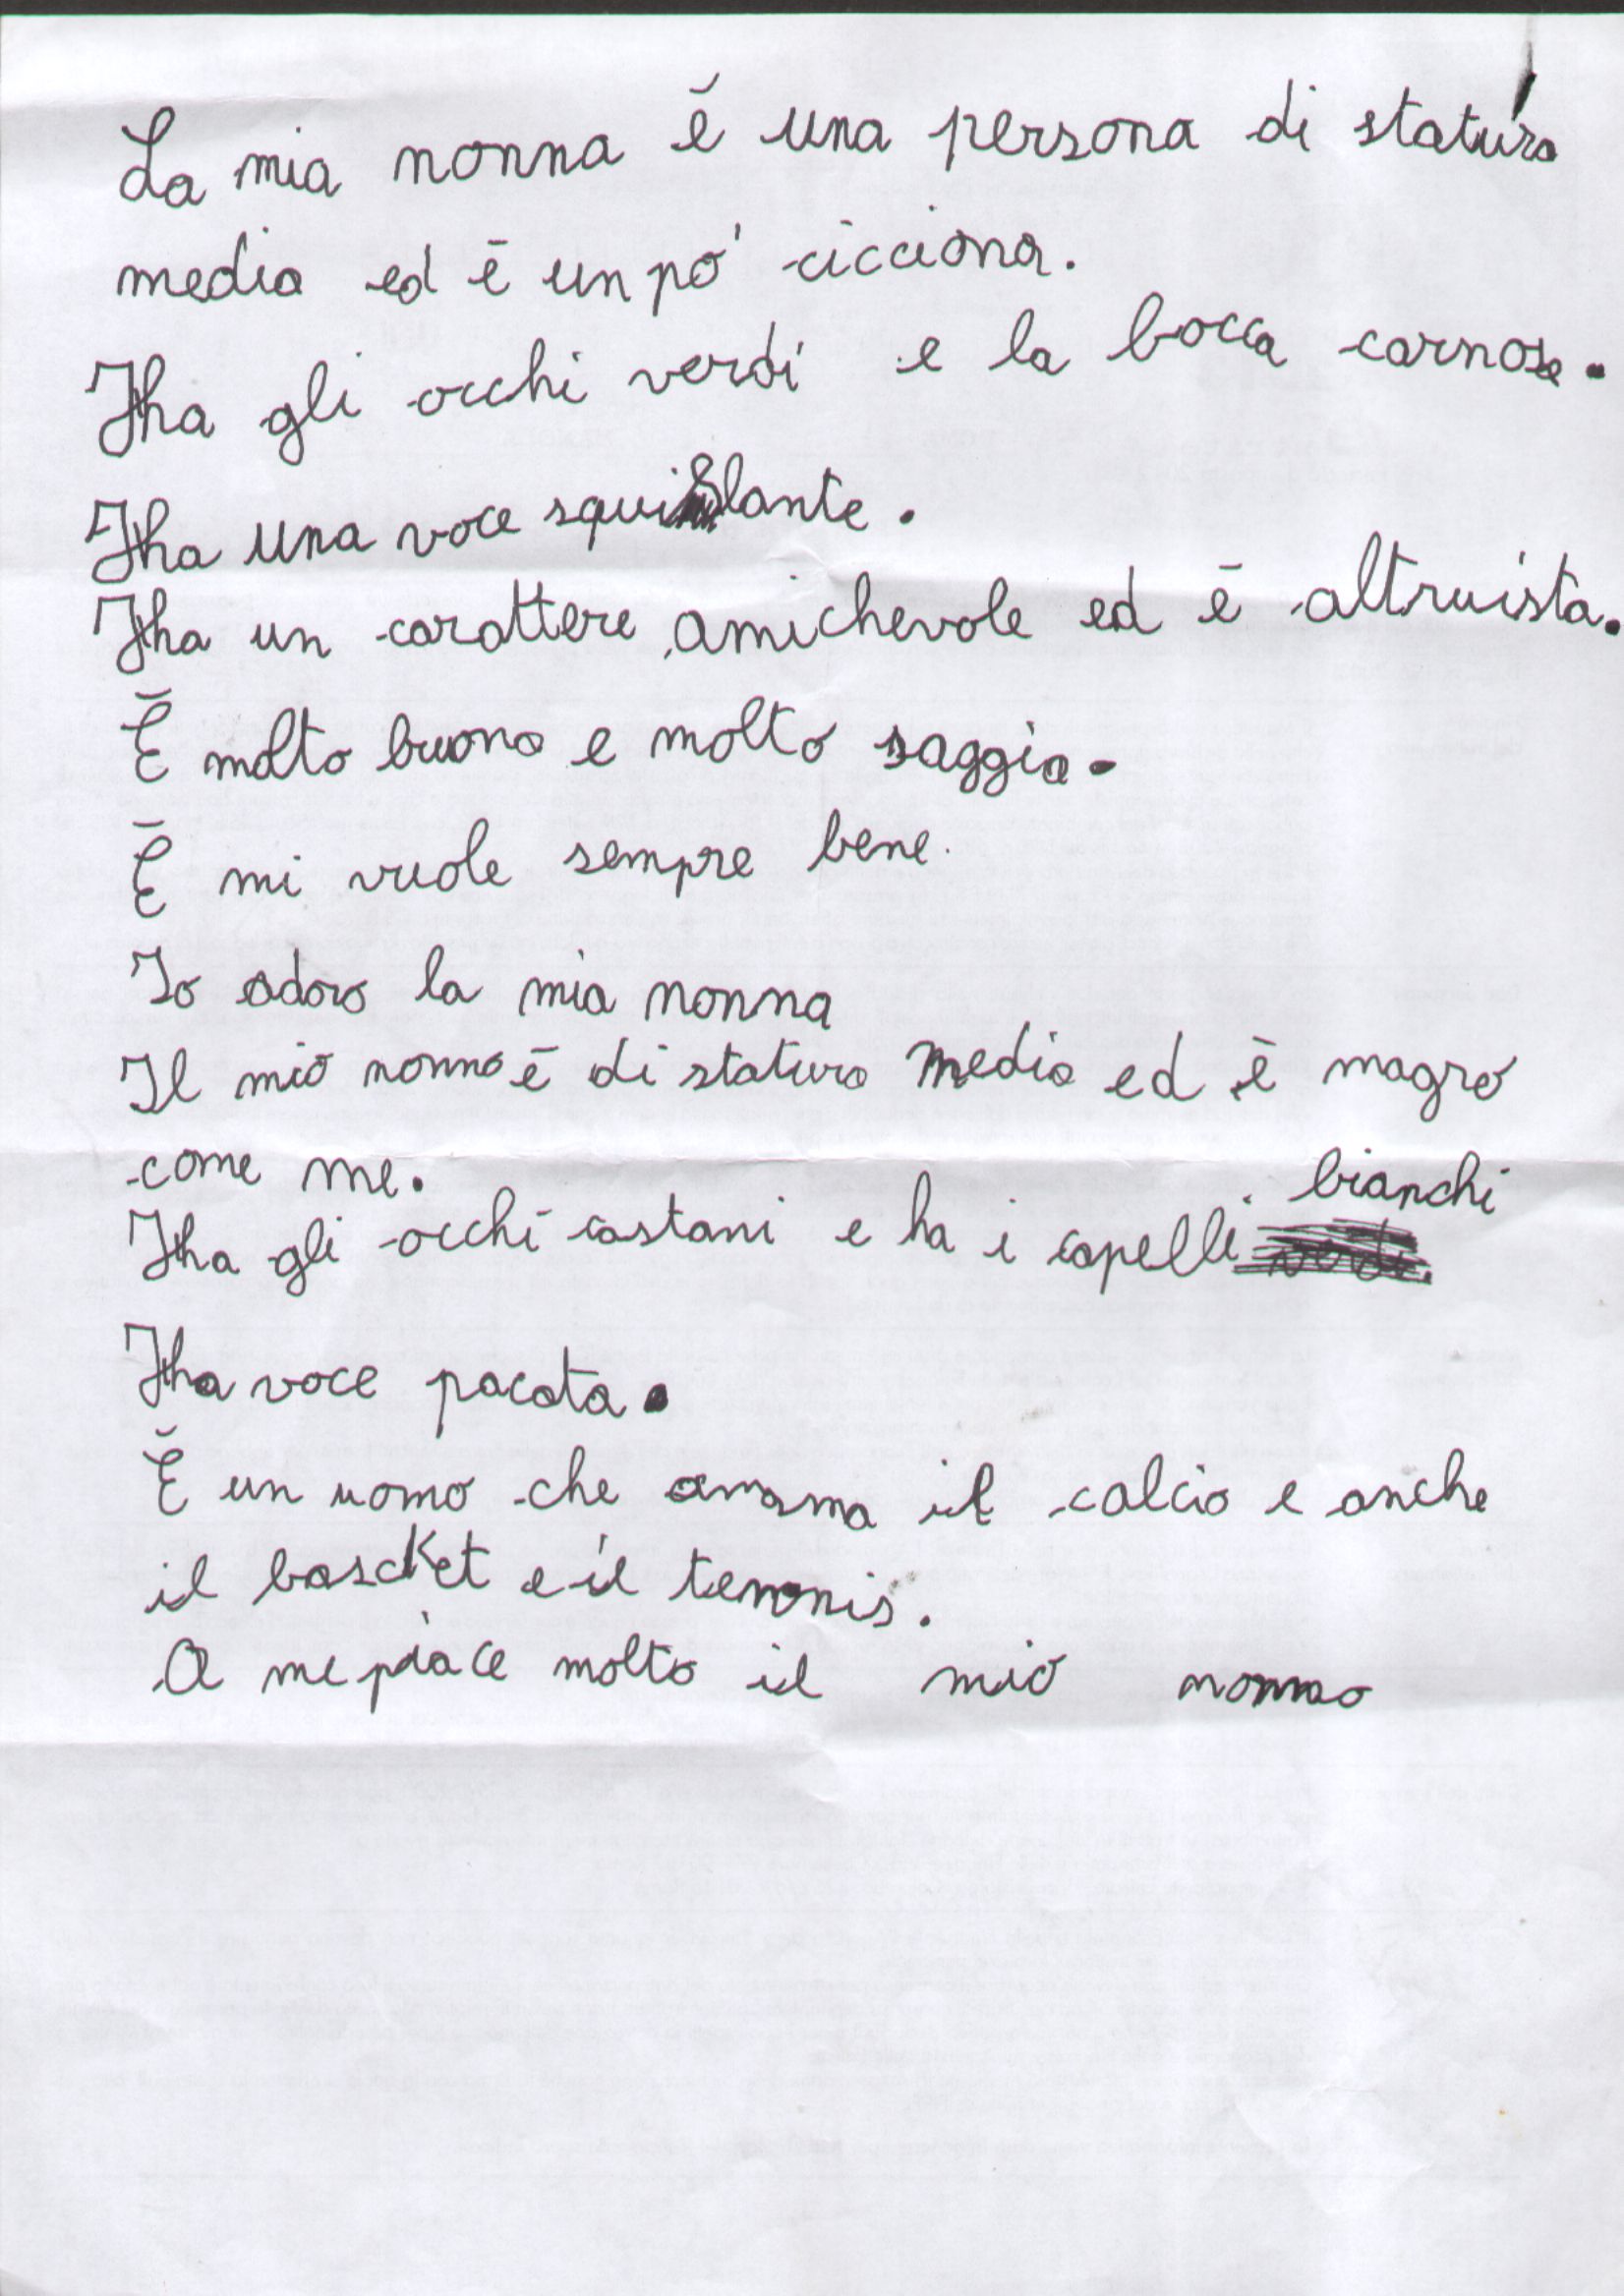 La mia nonna è una persona di statura
media ed è un pò cicciona.
Ha gli occhi verdi e la bocca carnosa.
Ha una voce squillante.
Ha un carattere amichevole ed è altruista.
È molto buona e molto saggia.
È mi vuole sempre bene.
Io adoro la mia nonna
Il mio nonno è di statura media ed è magro
come me.
Ha gli occhi castani e ha i capelli bianchi
Ha voce pacata.
È un uomo che ama il calcio e anche
il bascket e il tennis.
A me piace molto il mio nonno